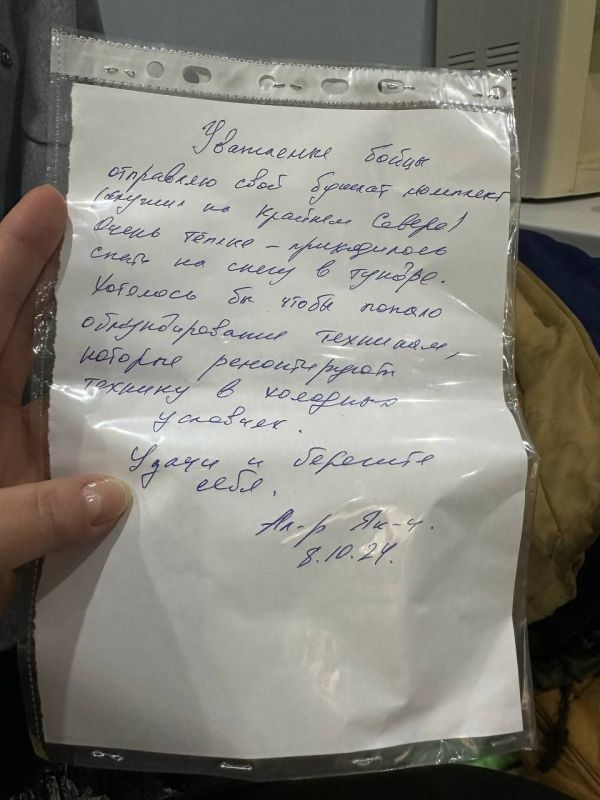 Уважаемые бойцы
отправляю свой бушлат комплект
на Крайнем Севере)
Очень тёплые – приходилось
спать на снегу в тундре.
Хотелось бы чтобы попало
обмундирование техникам,
которые ремонтируют
технику в холодных
условиях.
Удачи и берегите
себя.
Ал-р Як-ч.
8.10.24.